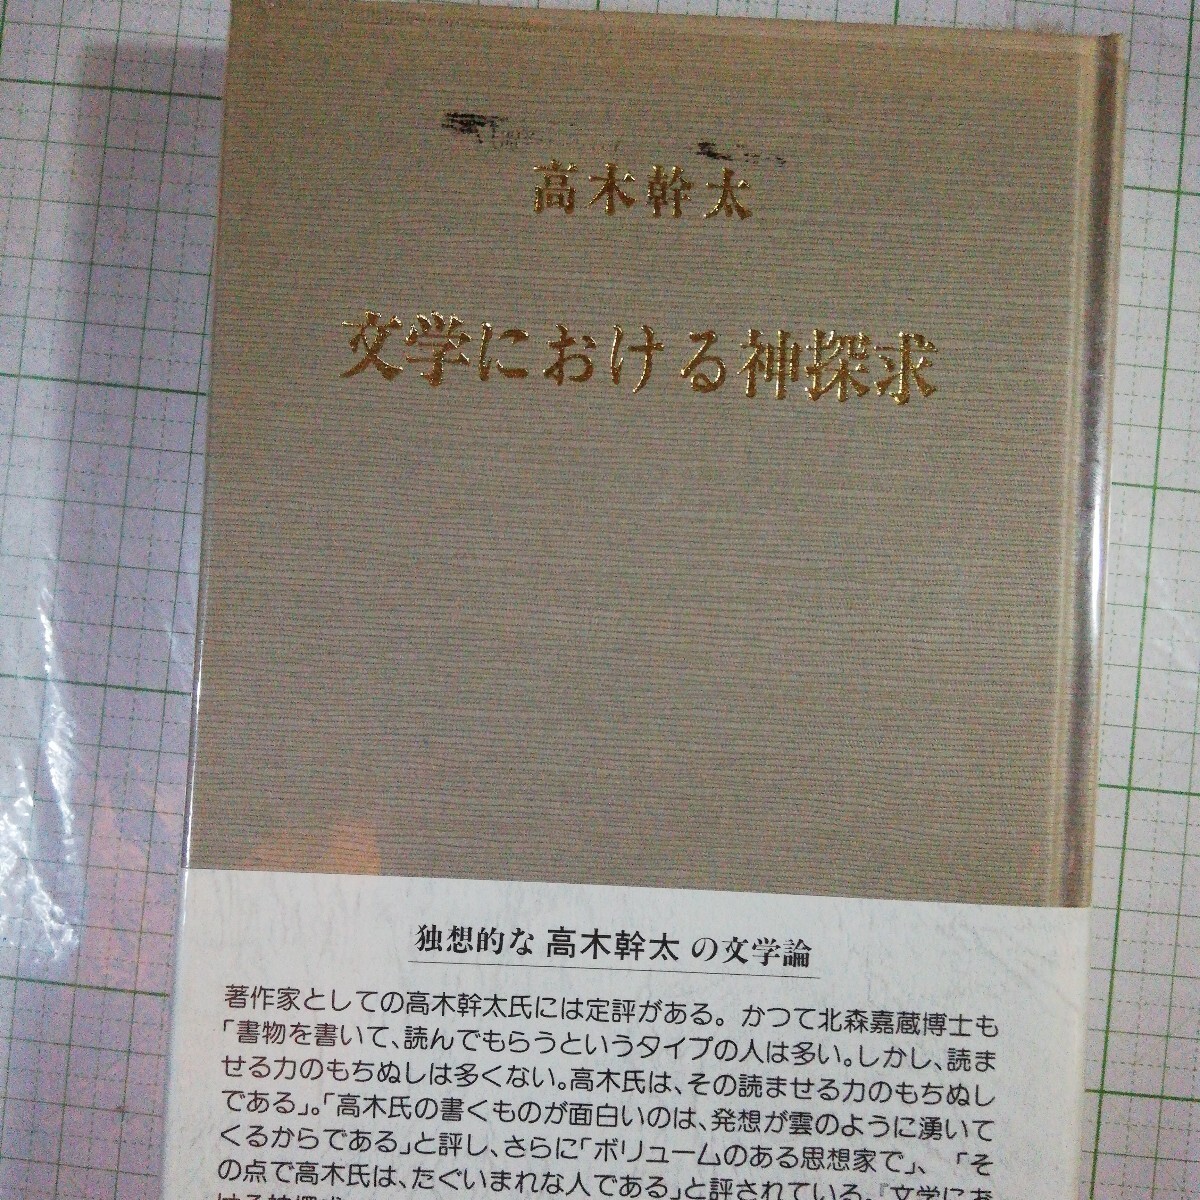 高木幹太
文学における神探求
独想的な 高木幹太 の文学論
著作家としての高木幹太氏には定評がある。かつて北森嘉蔵博士も
「書物を書いて、読んでもらうというタイプの人は多い。しかし、読ま
せる力のもちぬしは多くない。高木氏は、その読ませる力のもちぬし
である」。「高木氏の書くものが面白いのは、発想が雲のように湧いて
くるからである」と評し、さらに「ボリュームのある思想家で」、「そ
の点で高木氏は、たぐいまれな人である」と評されている。『文学にお